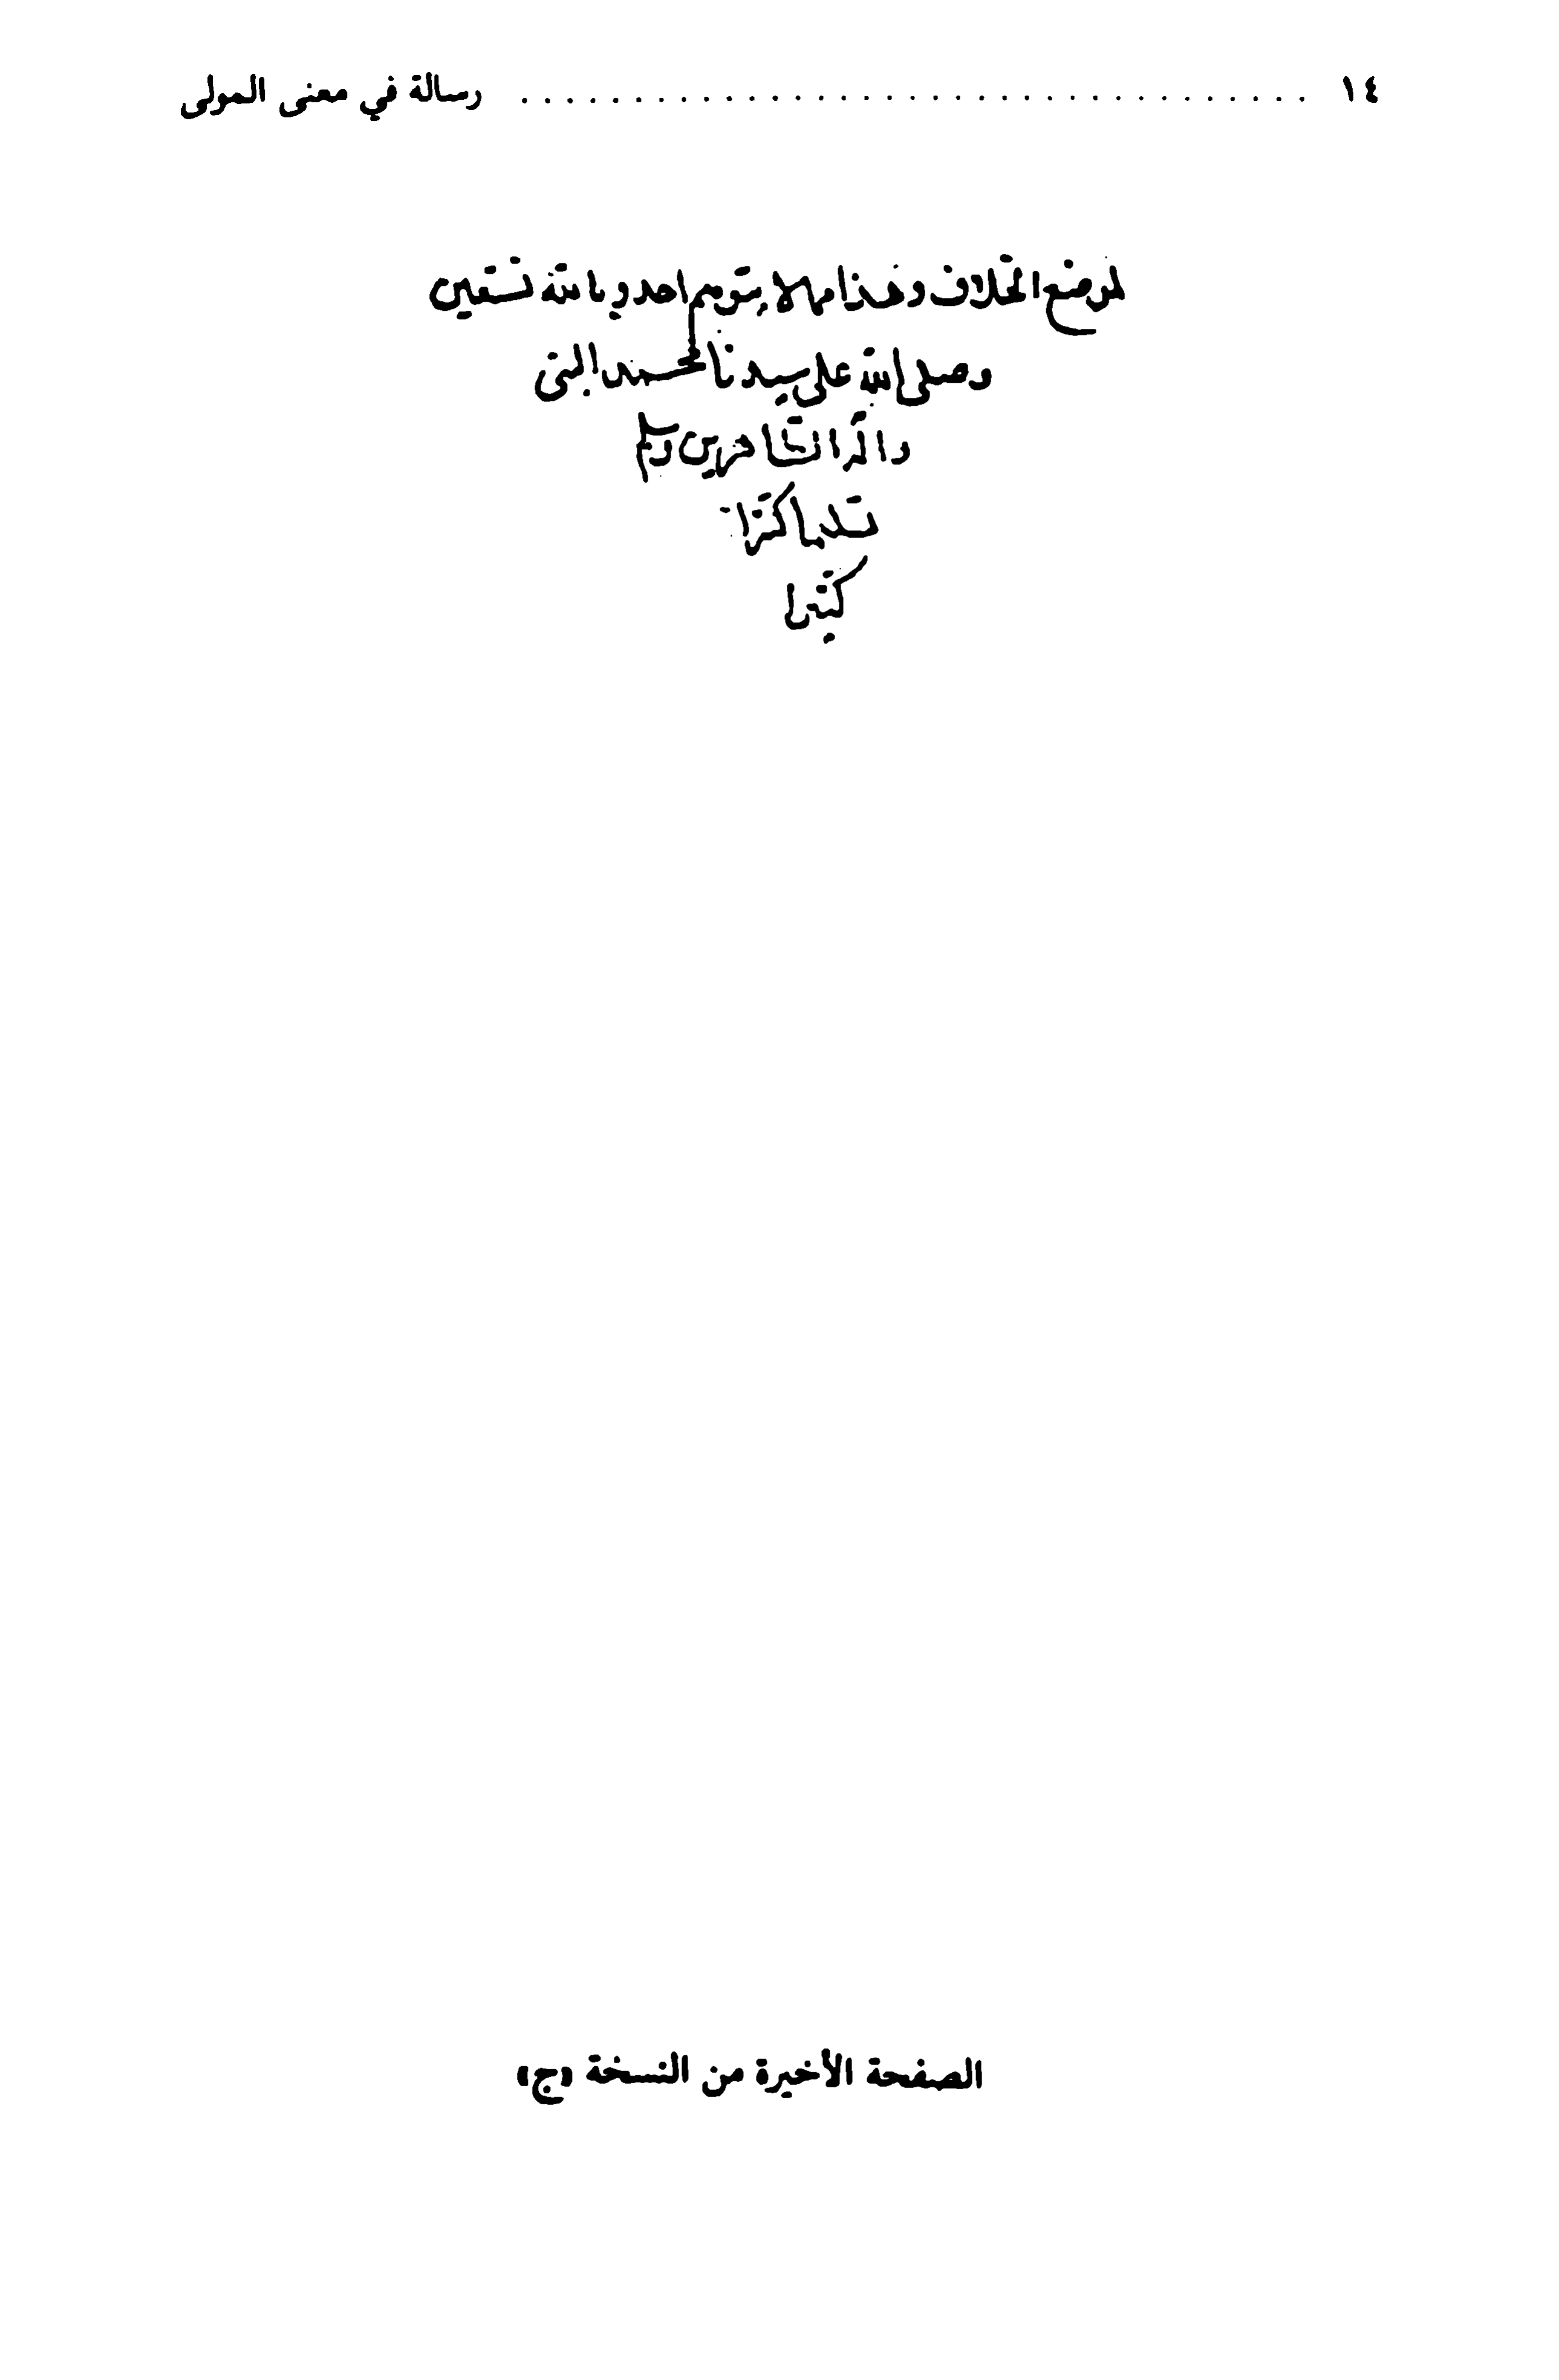 ١٤ ........ رسالة في معنى المولى
لوضع الخلاف وهذا مما لا يتوهم احد وبالله نستعين
وصلى الله على سيدنا محمد النبي
واله الطاهرين وسلم
تسليما كثيرا
كثيرا
الصفحة الأخيرة من النسخة «ج»